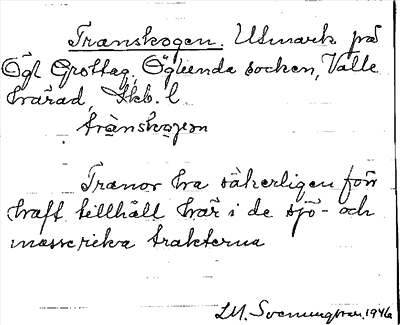 Transkogen. Utmark på
Ögl Grottag, Öglunda socken, Valle
härad, Skb. l.
trànskọgen
Tranor ha säkerligen förr
haft tillhåll här i de sjö- och
mosserika trakterna
LM. Svenungsson, 1946